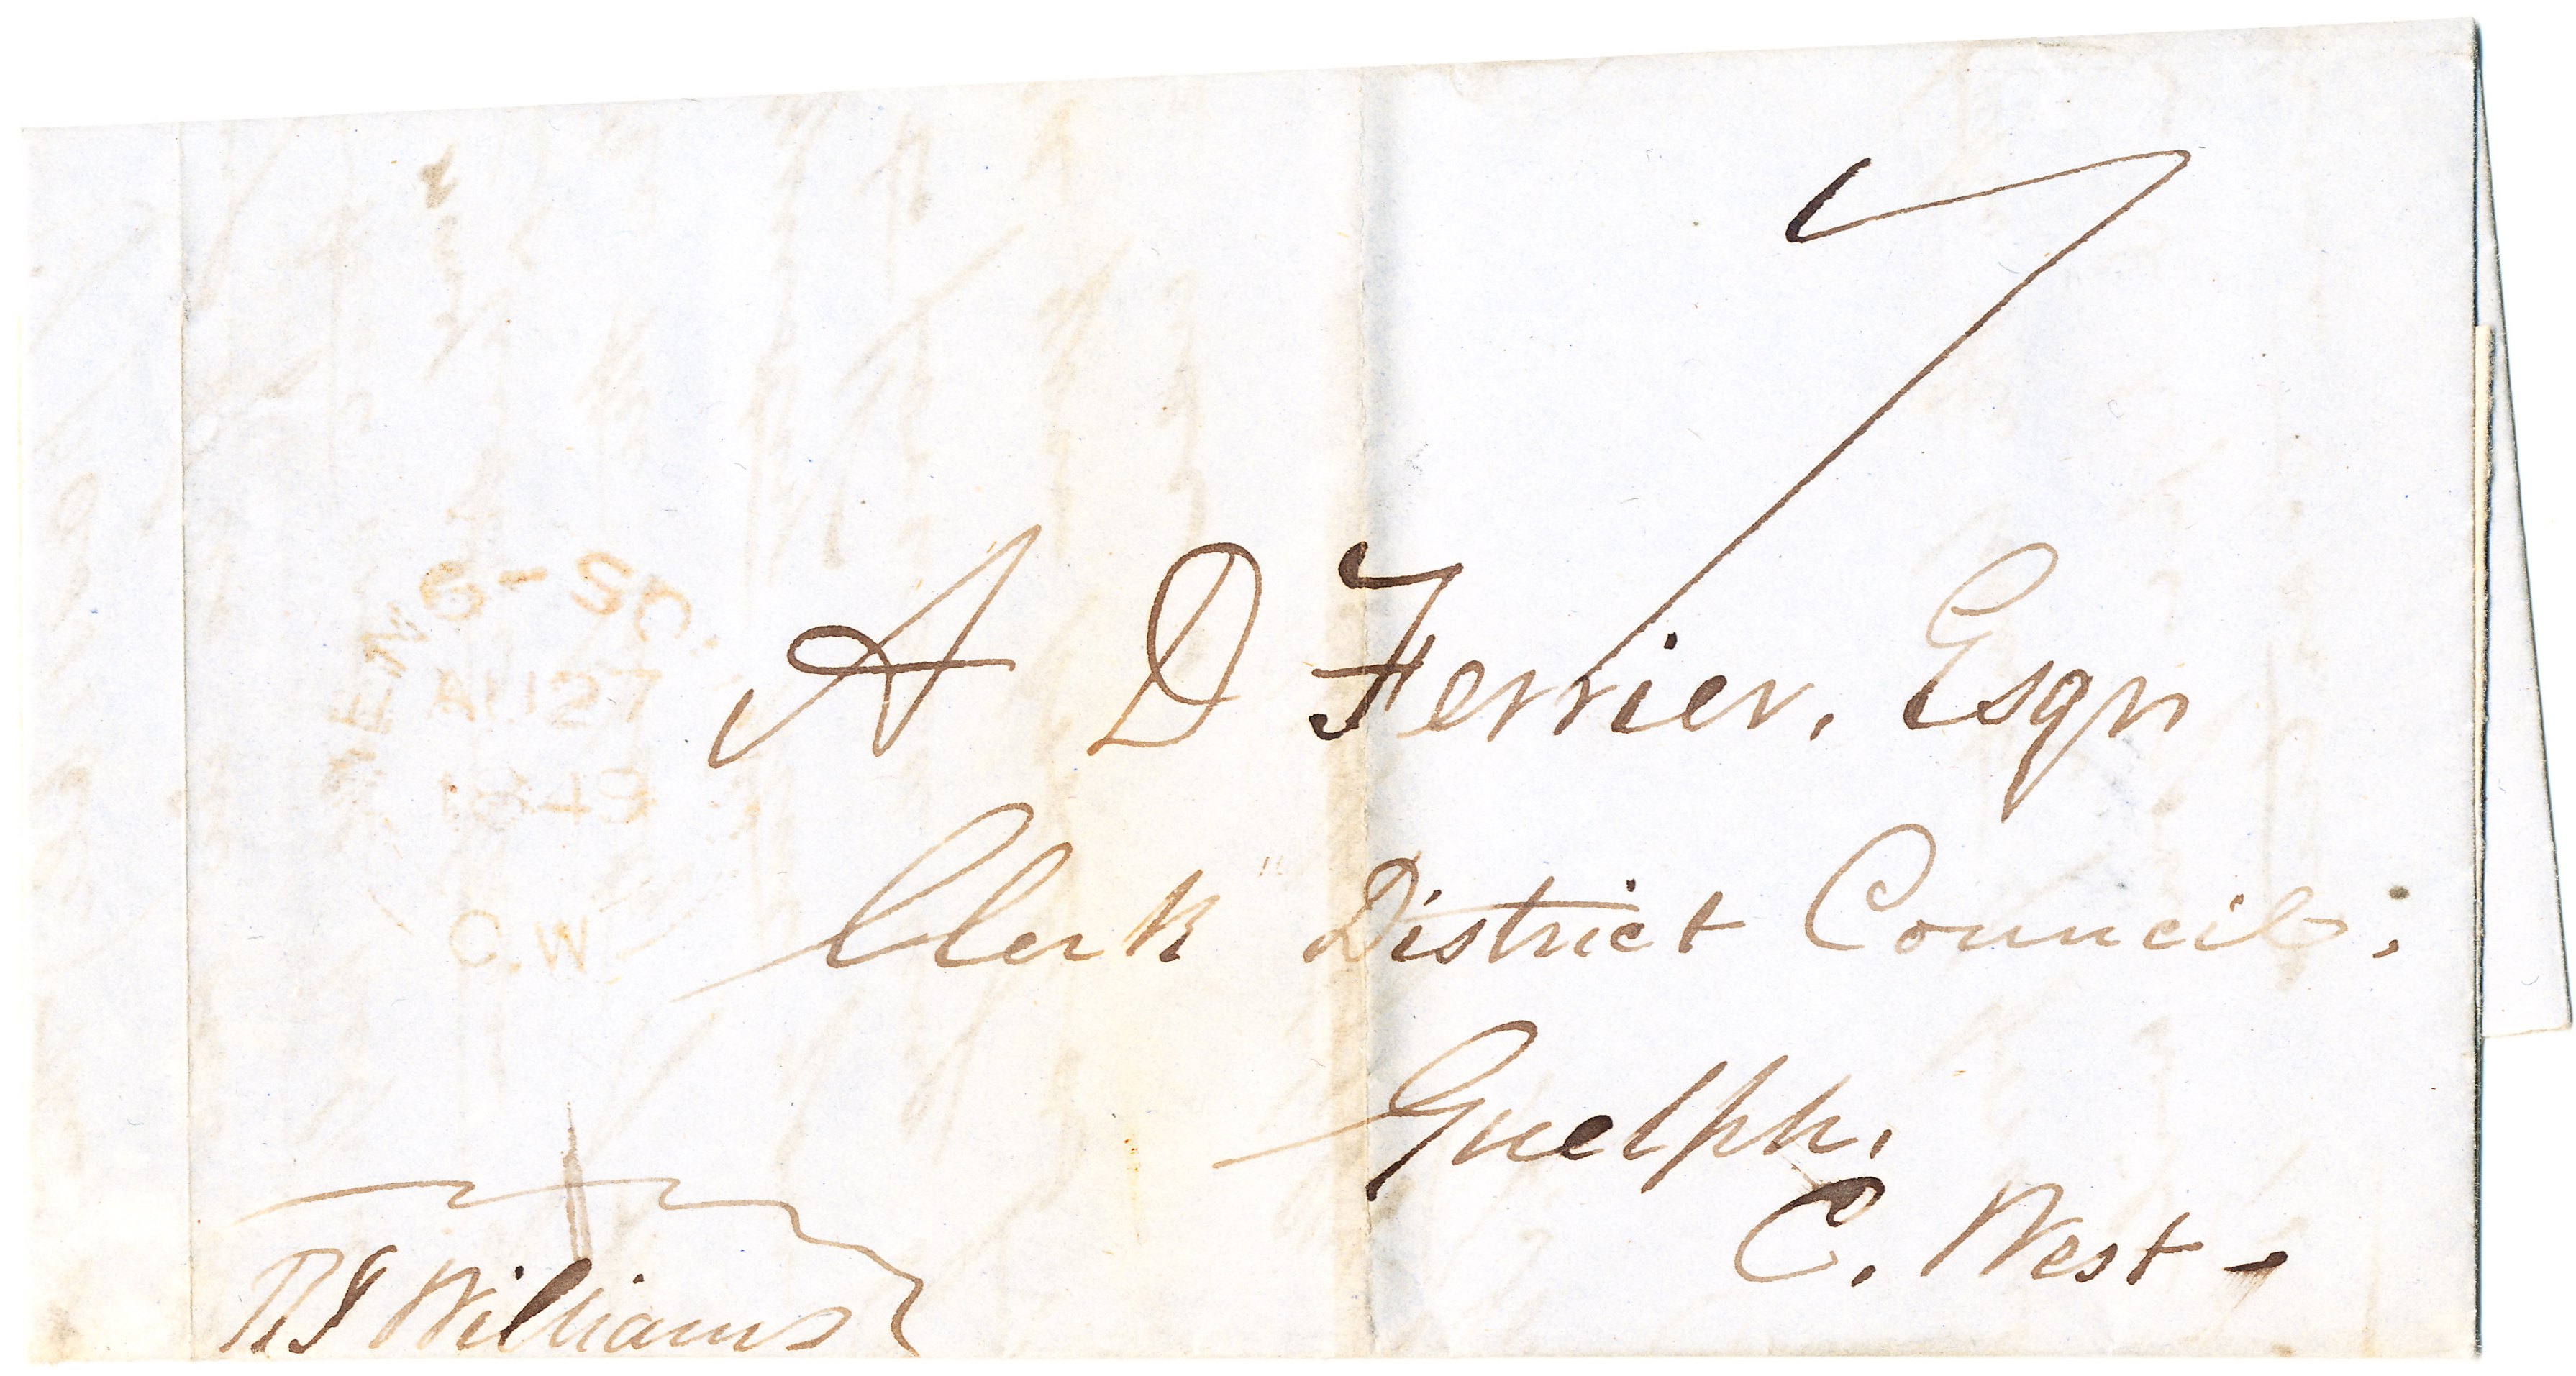 7
AU 27
1849
C.W.
A D Ferrier, Esqr
Clerk District Council;
Guelph.
C. West -
Williams